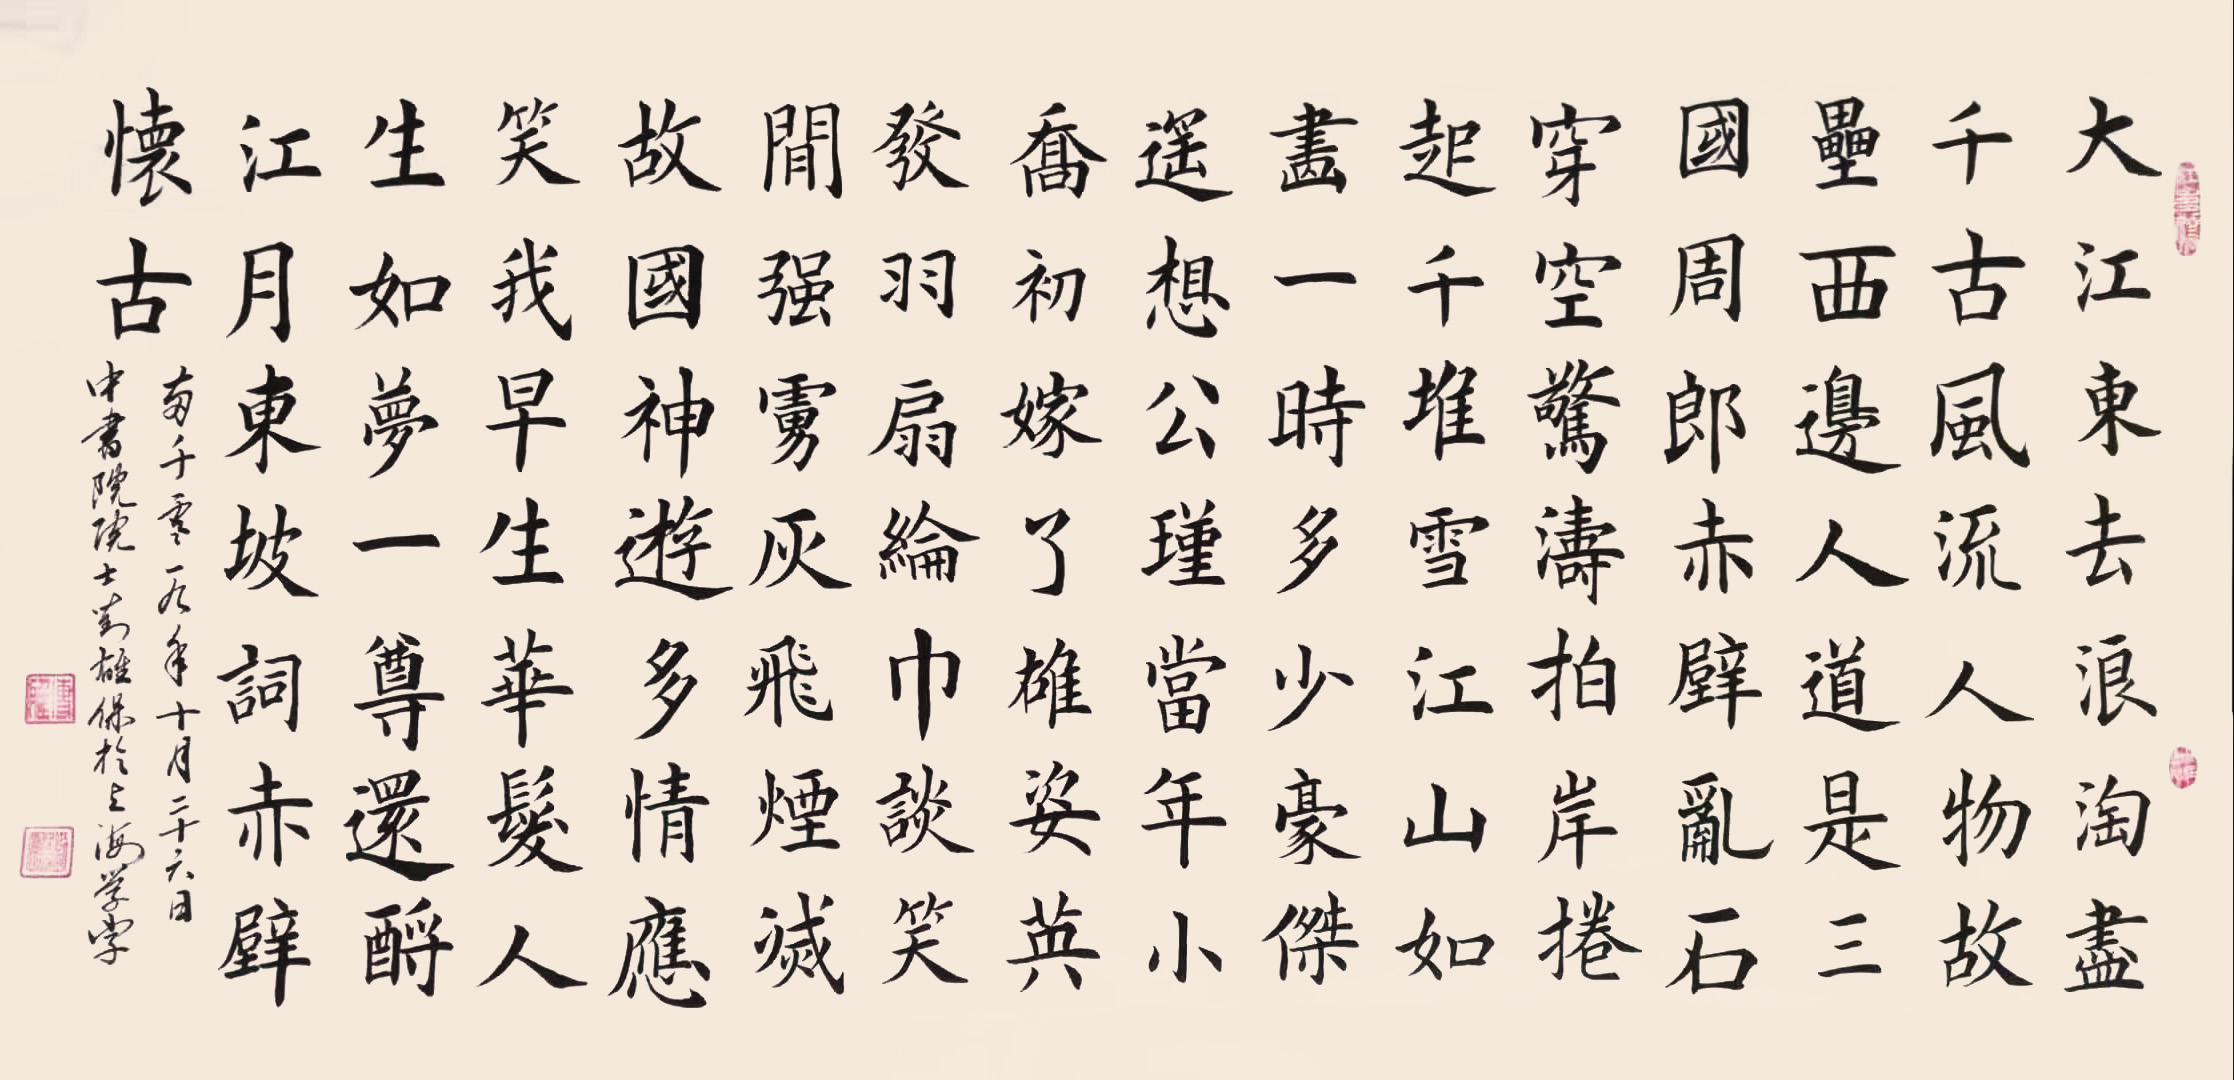 大江東去浪淘盡
千古風流人物故
壘西邊人道是三
國周郎赤壁亂石
穿空驚濤拍岸捲
起千堆雪江山如
畫一時多少豪傑
遥想公瑾當年小
喬初嫁了雄姿英
發羽扇綸巾談笑
間强虜灰飛煙滅
故國神遊多情應
笑我早生華髮人
生如夢一尊還酹
江月東坡詞赤壁
懷古
千零一九年十月二十六日
中書院院士劉雄保於上海学堂